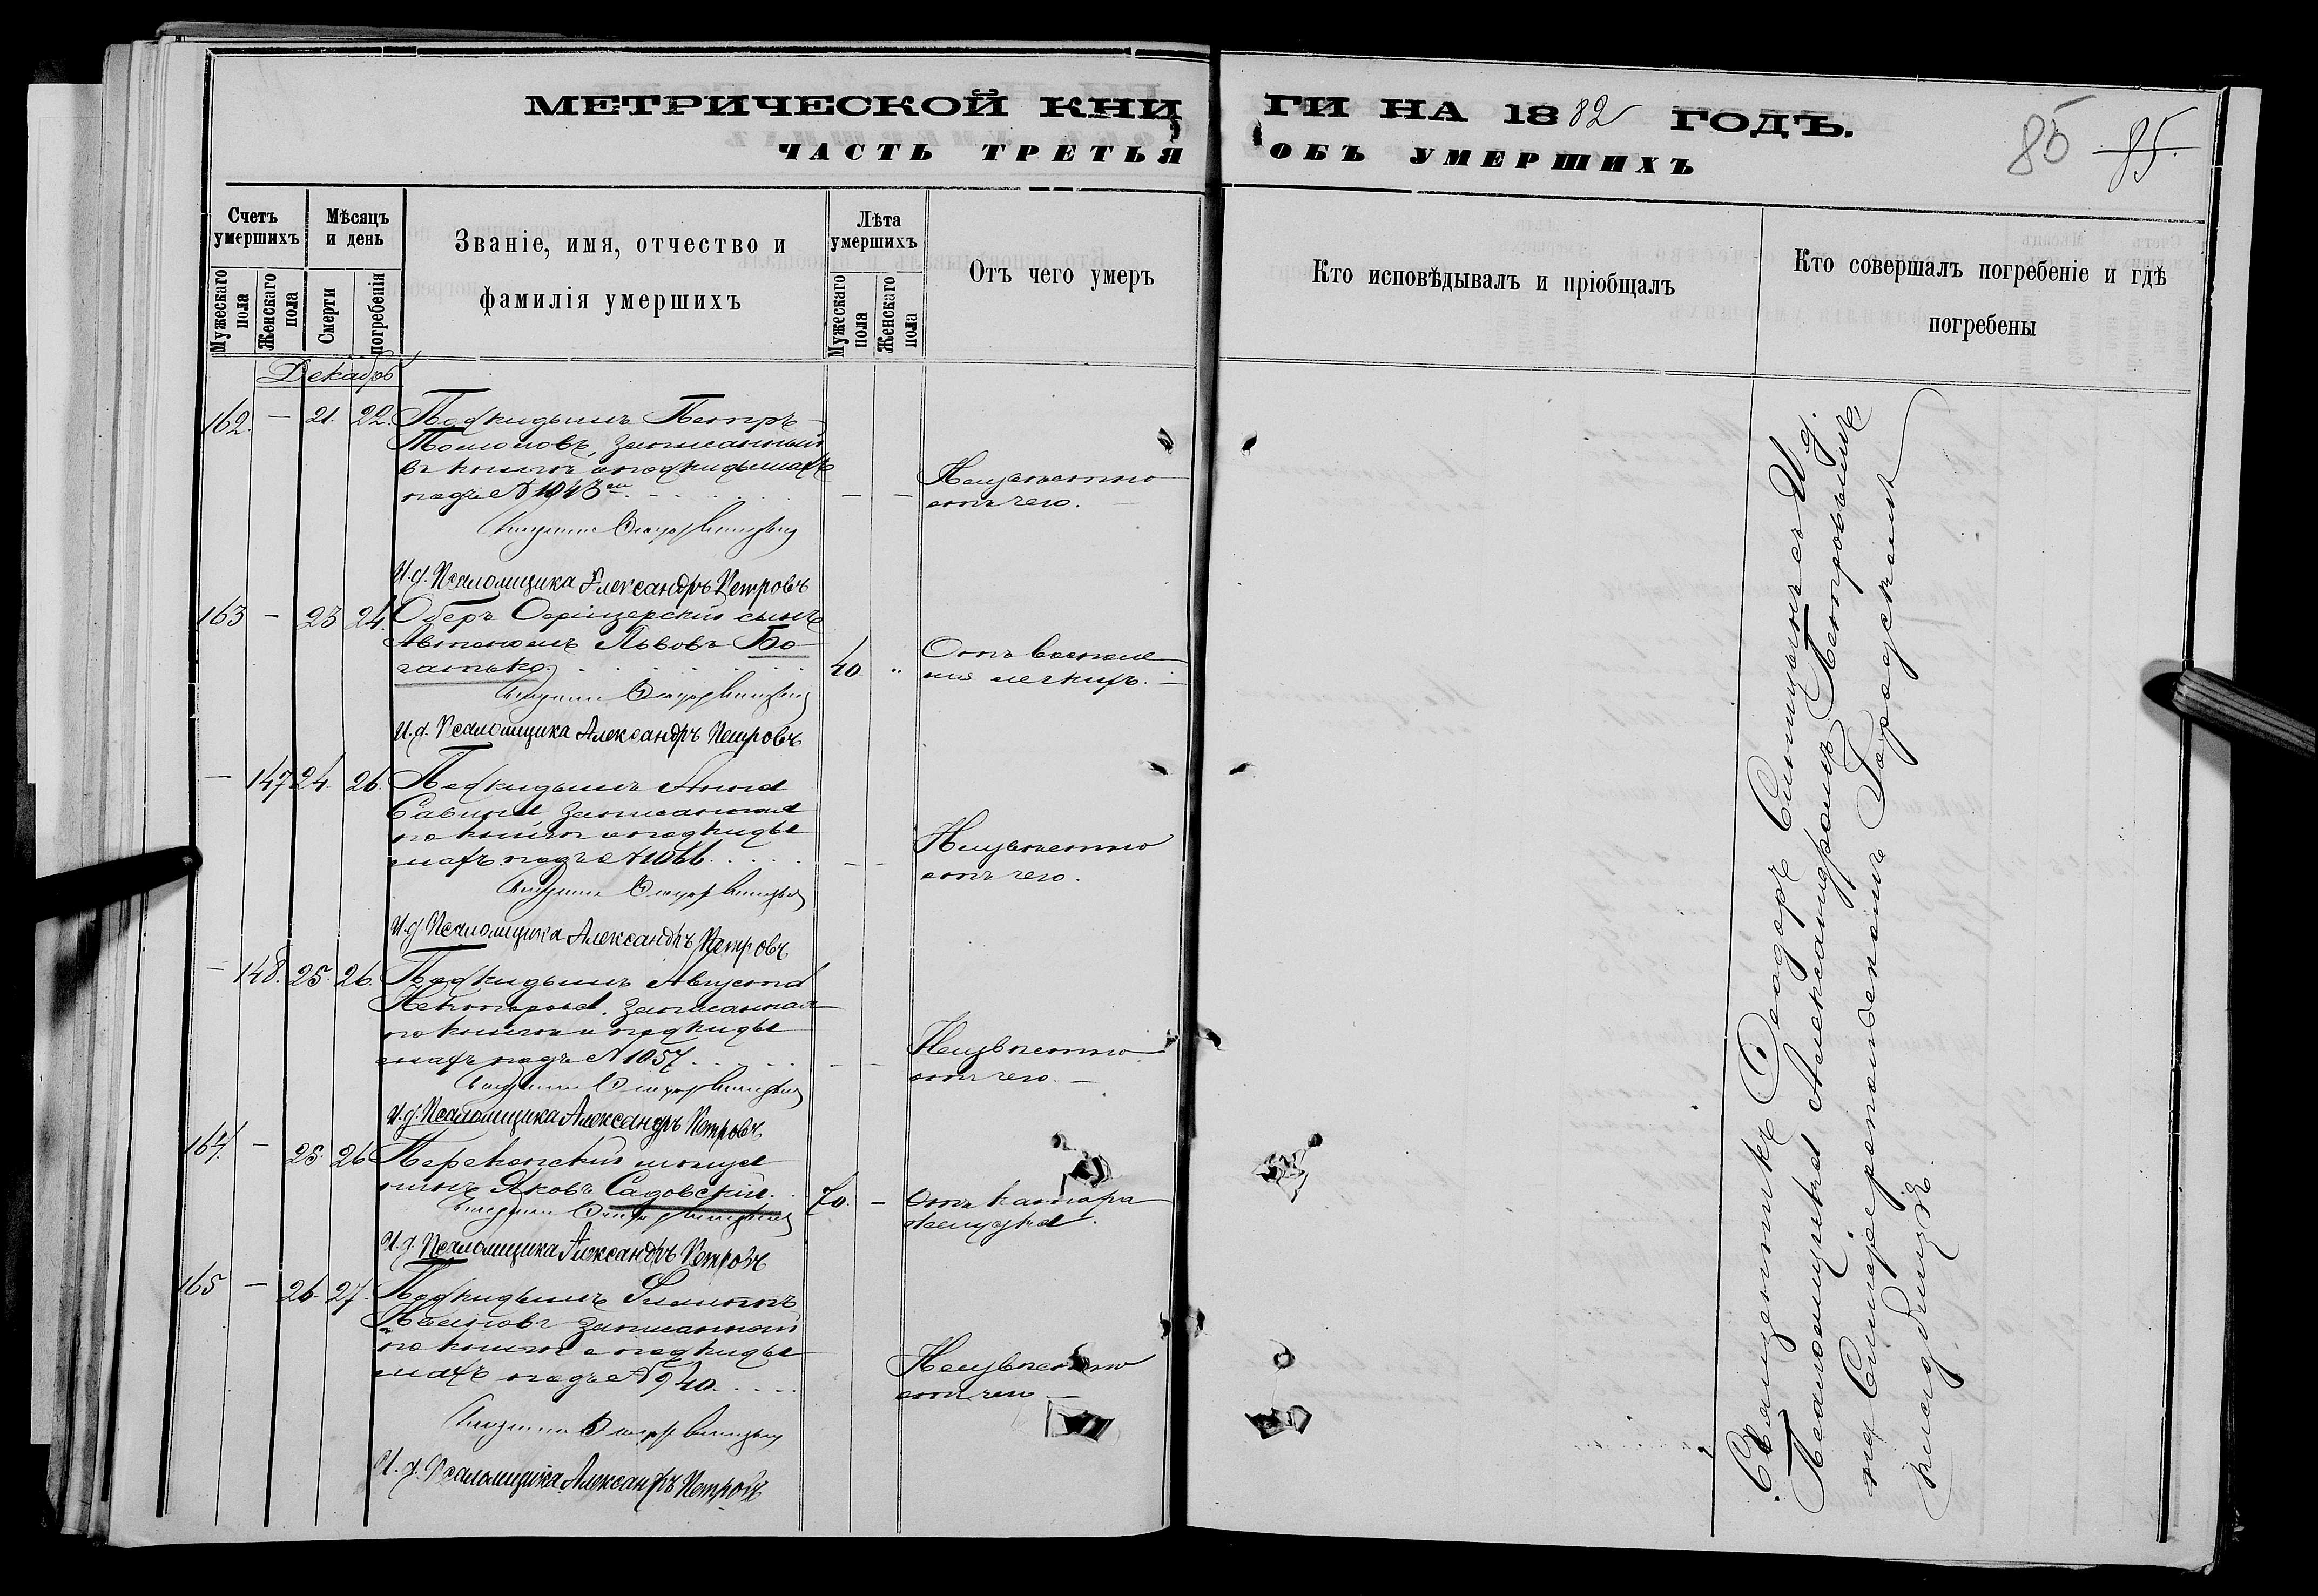 МЕТРИЧЕСКОЙ КНИГИ НА 1882 ГОДЪ.
ЧАСТЬ ТРЕТЬЯ ОБЪ УМЕРШИХЪ
85 85.
Счетъ умершихъ
Мужескаго пола
Женскаго пола
Мѣсяцъ и день
Смерти
погребенія
Званіе, имя, отчество и
фамилія умершихъ
Лѣта умершихъ
Мужескаго пола
Женскаго пола
Отъ чего умеръ
Кто исповѣдывалъ и пріобщалъ
Кто совершалъ погребеніе и гдѣ
погребены
Декабрь
162. — 21. 22. Подкидышъ Петръ
записанный
въ книгѣ о подкидышахъ
подъ № 1043 — — Неизвѣстно
отъ чего.
И.д. Псаломщика Александръ Петровъ
163 — 23 24. Оберъ Офицерскій сынъ
Львовъ Бо-
гатько. 40 „ Отъ воспале
нія легкихъ. —
И.д. Псаломщика Александръ Петровъ
— 147 24. 26. Подкидышъ Анна
Савина записанная
по книгѣ о подкиды
шахъ подъ № 1066. — — Неизвѣстно
отъ чего.
И.д. Псаломщика Александръ Петровъ
— 148. 25. 26. Подкидышъ Августа
записанная
по книгѣ о подкиды
шахъ подъ № 1057. — — Неизвѣстно
отъ чего. —
И.д. Псаломщика Александръ Петровъ
164. — 25. 26 Перекопскій мѣща
нинъ Яковъ Садовскій. 70. — Отъ катара
желудка.
И.д. Псаломщика Александръ Петровъ
165 — 26. 27. Подкидышъ Филиппъ
записанный
по книгѣ о подкиды
шахъ подъ № 940. Неизвѣстно
отъ чего —
И.д. Псаломщика Александръ Петровъ
Священникъ Феодоръ съ И. д.
Псаломщика Александромъ Петровымъ,
на Симферопольскомъ Городскомъ
кладбищѣ.